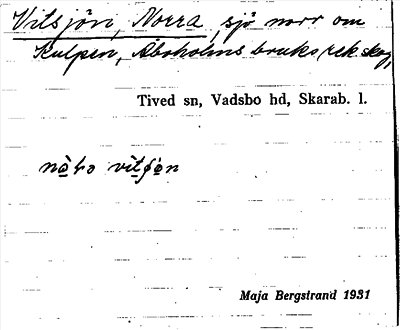 Vitsjön, Norra, sjö norr om
Kulpen, Åboholms bruks rekskog,
Tived sn, Vadsbo hd, Skarab. l.
Maja Bergstrand 1931